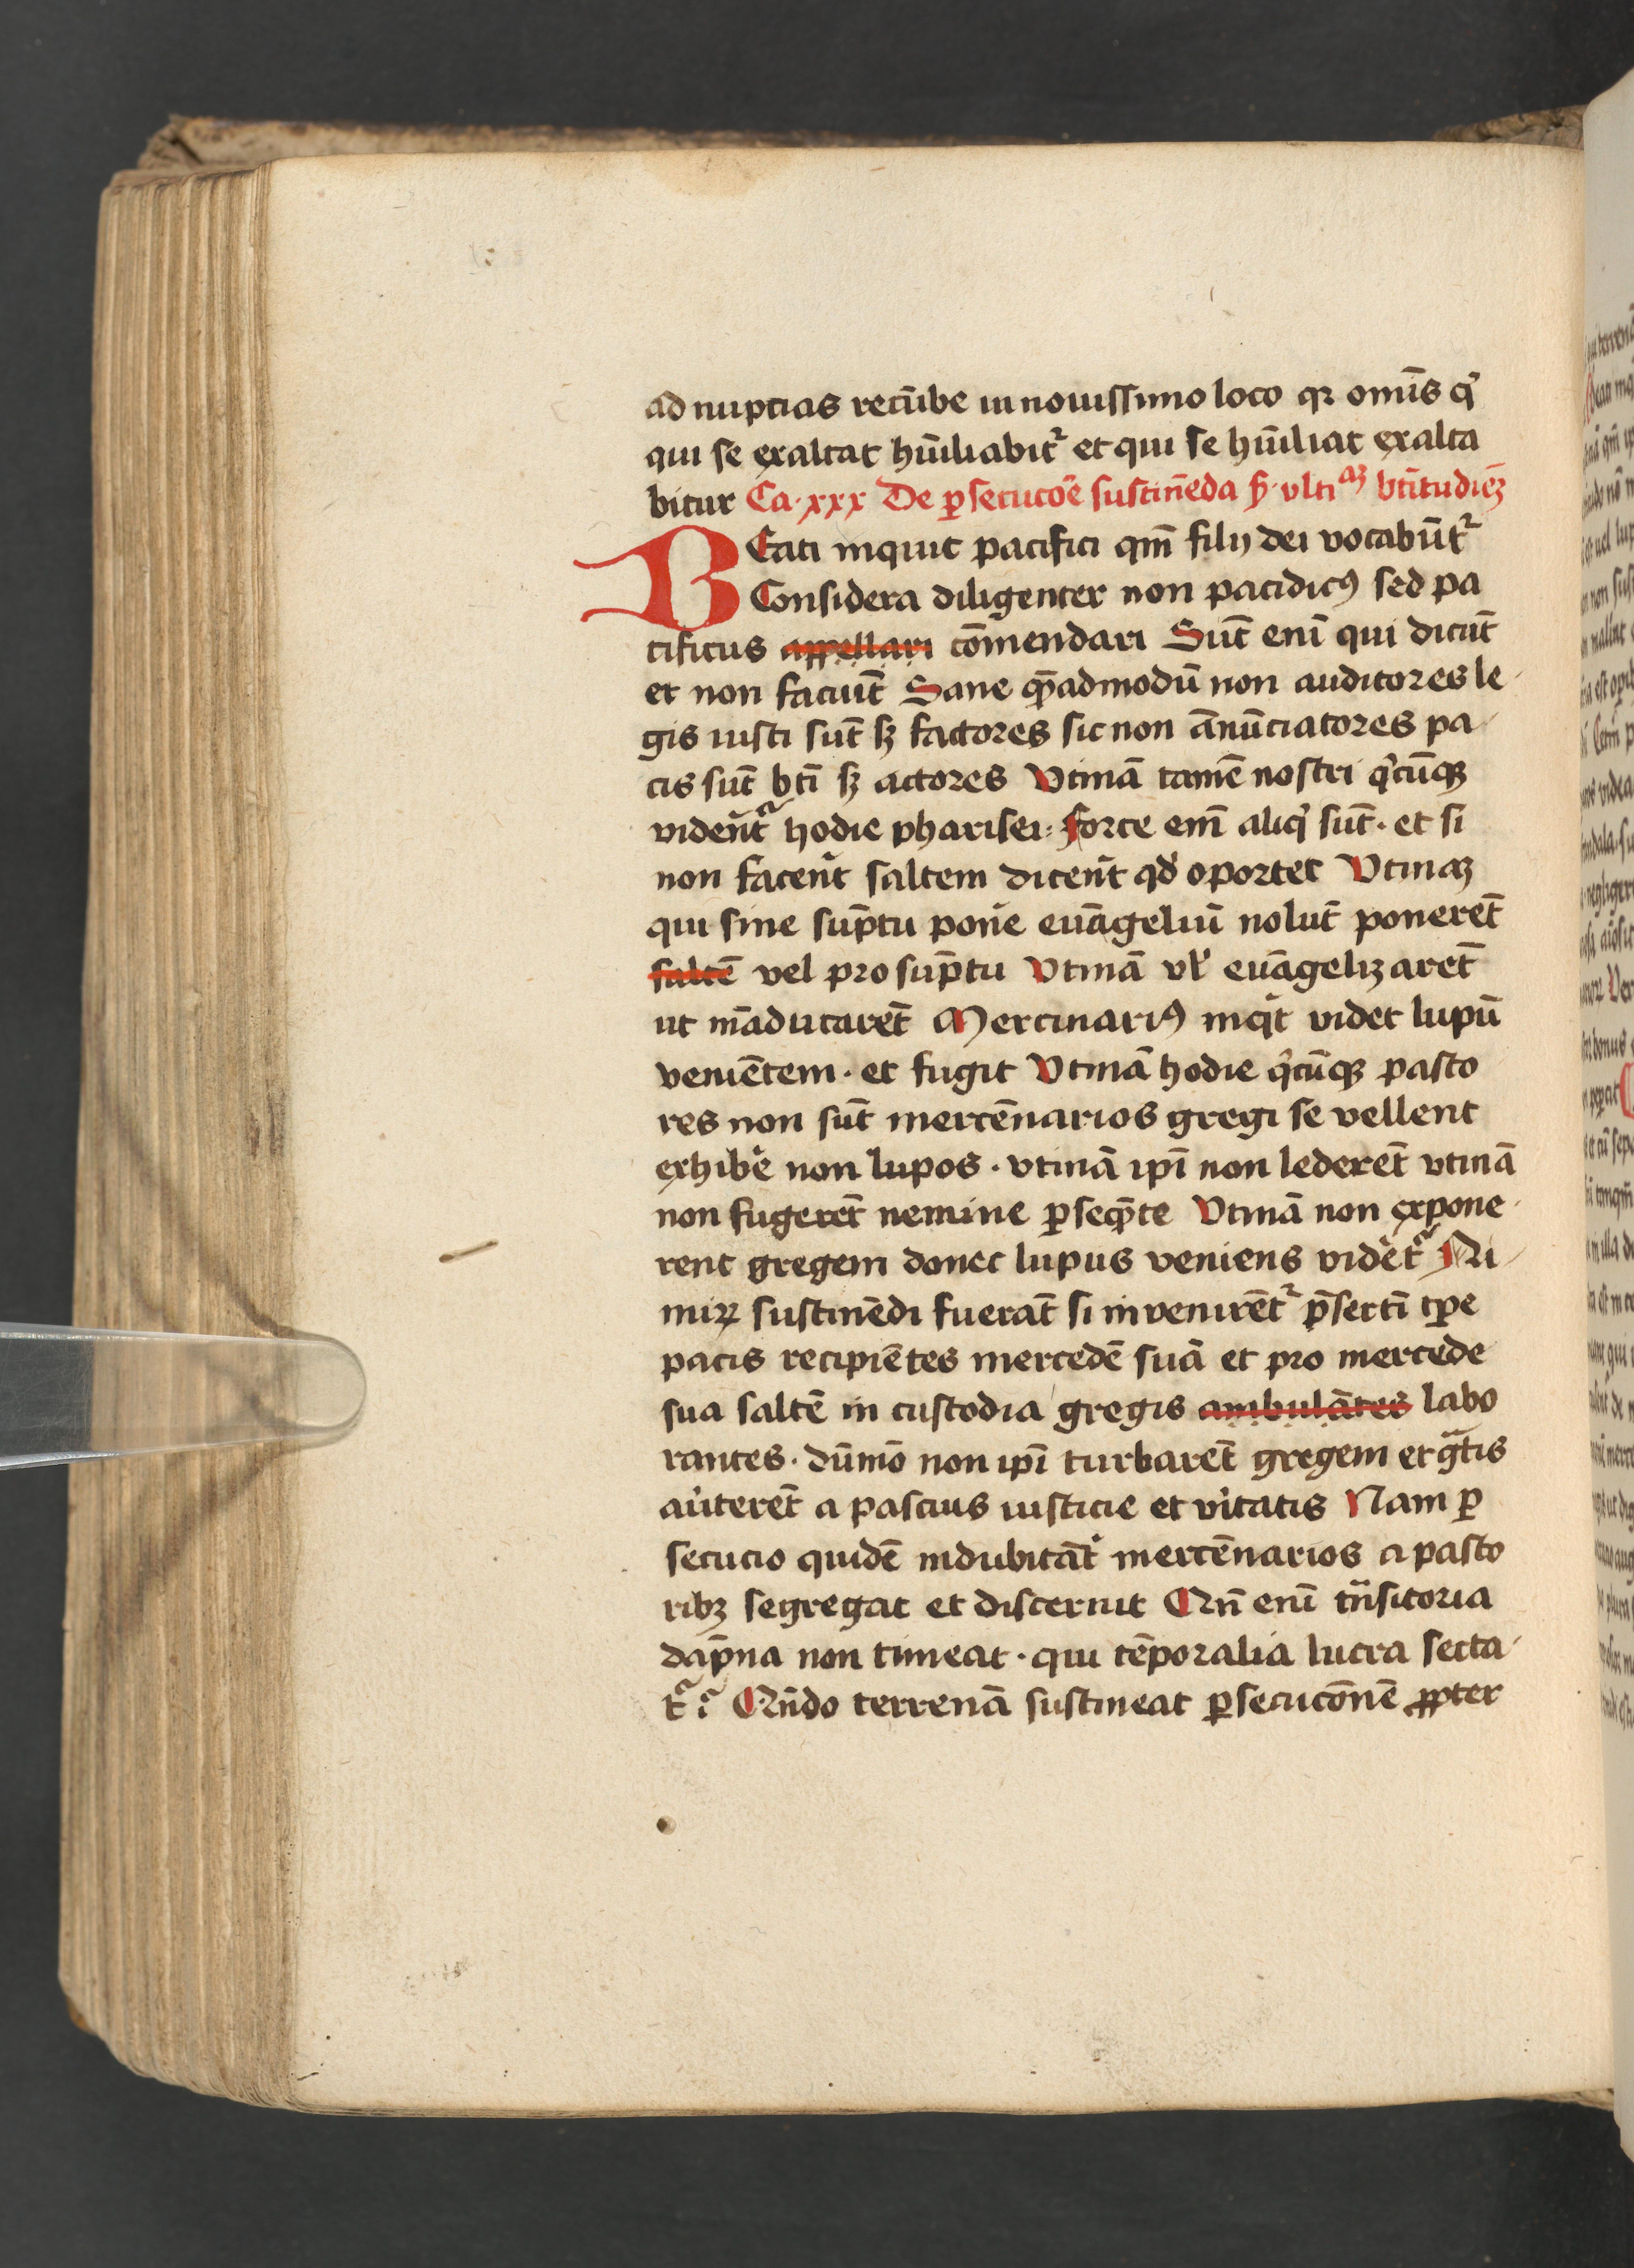 ad nuptias recūbe in nouissimo loco qꝛ omīs q̇
qui se exaltat hūiliabitᷣ et qui se hūiliat exalta
bitur Ca. xxx De ꝑsecucōe sustinēda ẜ vltiaꝫ btītudīeꝫ
BEati inquit pacifici qm̄ filij dei vocabūtᷣ
Considera diligenter non pacidicꝯ sed pa
cificus appellari cōmendari Sūt enī qui dicūt
et non faciūt Sane qᷓadmodū non auditores le
gis iusti sūt sꝫ factores sic non ānūciatores pa
cis sūt btī sꝫ actores Vtinā tamē nostri q̇cūqꝫ
vidēntᷣ hodie pharisei: forte em̄ aliq̇ sūt. et si
non facēnt saltem dicēnt qd̓ oportet Vtinaꝫ
qui sine sūptu pon̄e euāgeliū nolūt ponerēt
saltē vel pro sūptu Vtinā vl̓ euāgelizarēt
ut māducarēt Mercinariꝯ inq̇t videt lupū
veniētem. et fugit Vtinā hodie q̇cūqꝫ pasto
res non sūt mercēnarios gregi se vellent
exhib̓e non lupos. vtinā ip̄i non lederēt vtinā
non fugerēt nemine ꝑseq̄nte Vtinā non expone
rent gregem donec lupus veniens vid̓etᷣ Ni
miꝝ sustinēdi fuerāt si invenirētᷣ p̄sertī tꝑe
pacis recipiētes mercedē suā et pro mercede
sua saltē in custodia gregis ambulātes labo
rantes. dūmō non ip̄i turbarēt gregem et gᷓtis
au̓terēt a pascius iusticie et v̓itatis Nam ꝑ
secucio quidē indubitāt̓ mercēnarios a pasto
ribꝫ segregat et discernit Qn̄ enī trn̄sitoria
dāpna non timeat. qui tēporalia lucra secta
tᷣ: Qn̄do terrenā sustineat ꝑsecucōnē ꝓpter